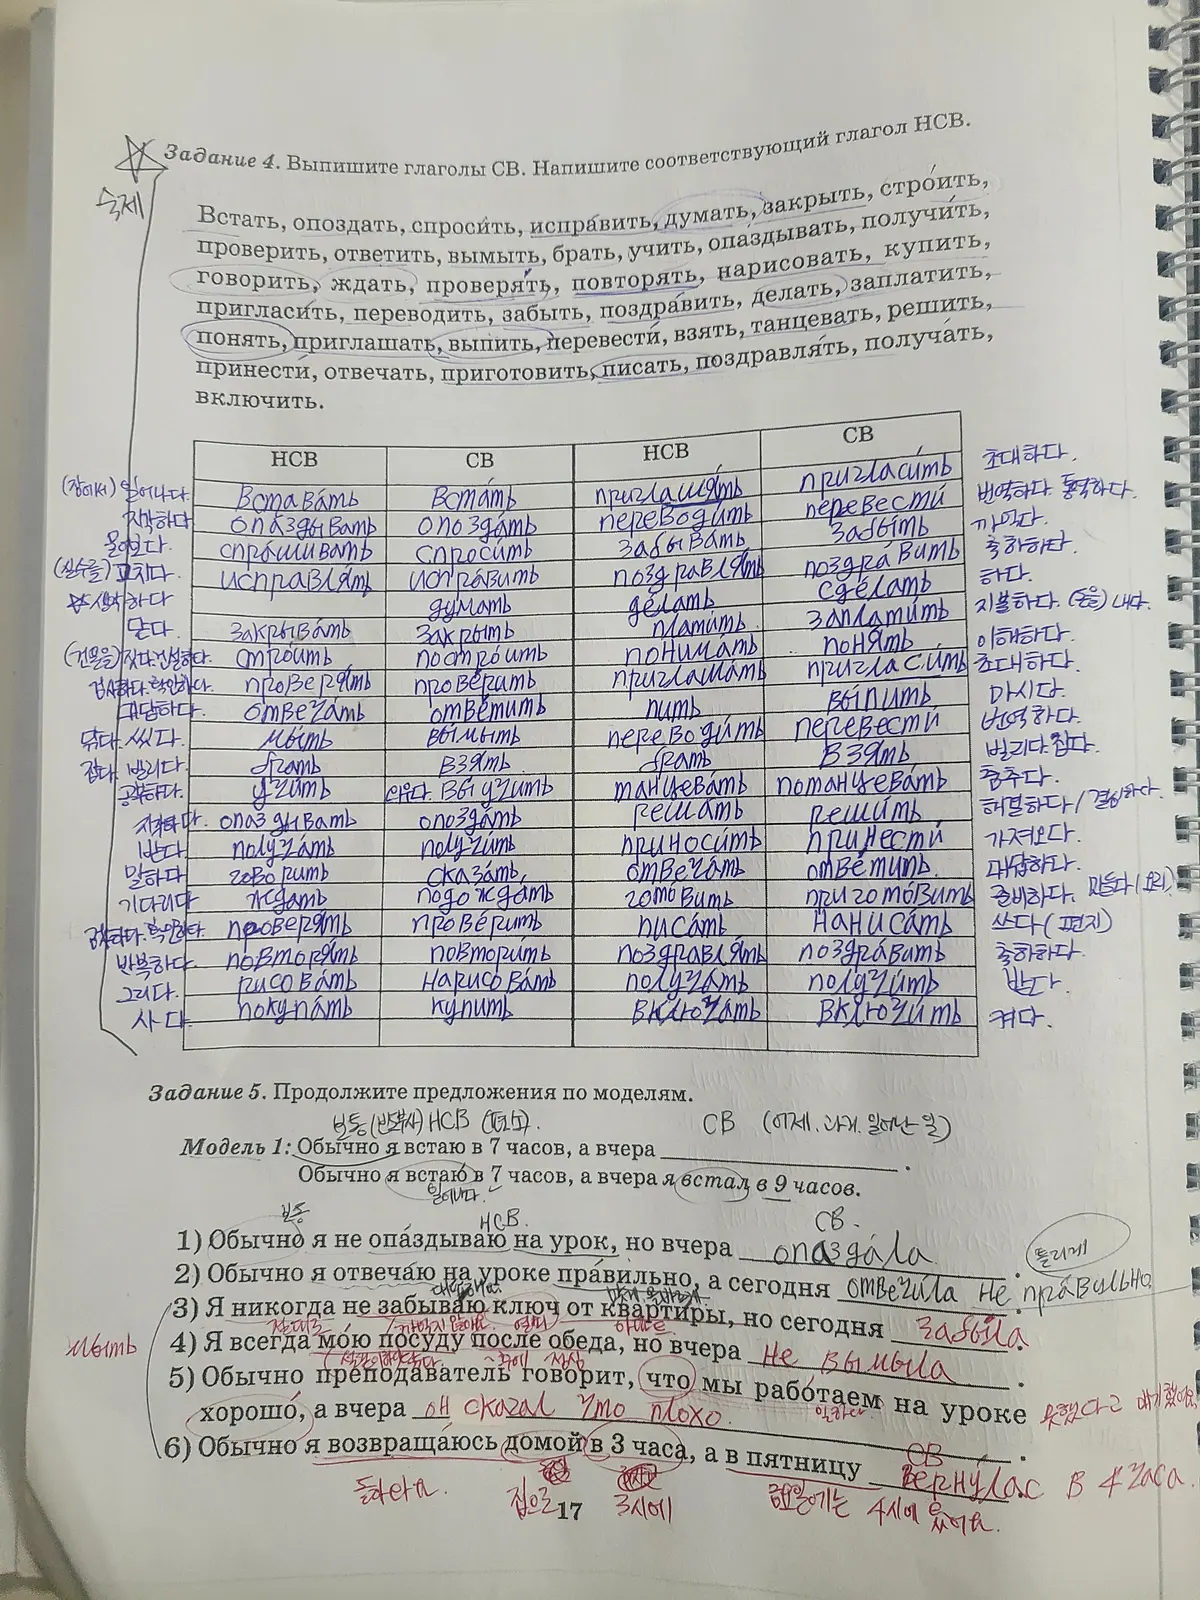 Задание 4. Выпишите глаголы СВ. Напишите соответствующий глагол НСВ.
숙제
Встать, опоздать, спроси́ть, испра́вить, ду́мать, закрыть, стро́ить,
проверить, ответить, вымыть, брать, учить, опа́здывать, получи́ть,
говорить, ждать, проверя́ть, повторять, нарисовать, купить,
пригласи́ть, переводить, забыть, поздра́вить, делать, заплатить,
понять, приглашать, выпить, перевести́, взять, танцевать, решить,
принести́, отвечать, приготовить, писать, поздравля́ть, получа́ть,
включить.
НСВ СВ НСВ СВ
(잠에서) 일어나다. Встава́ть Вста́ть приглаша́ть пригласи́ть 초대하다.
지각하다 опа́здывать опозда́ть переводи́ть перевести́ 번역하다. 통역하다.
물어보다. спра́шивать спроси́ть забыва́ть забы́ть 까먹다.
(실수를) 고치다. исправля́ть испра́вить поздравля́ть поздра́вить 축하하다.
생각하다 ду́мать де́лать сде́лать 하다.
닫다. закрыва́ть закры́ть плати́ть заплати́ть 지불하다. (돈을) 내다.
(건물을) 짓다. 건설하다. стро́ить постро́ить понима́ть поня́ть 이해하다.
검사하다. 확인하다. проверя́ть прове́рить приглаша́ть пригласи́ть 초대하다.
대답하다. отвеча́ть отве́тить пить вы́пить 마시다.
닦다. 씻다. мы́ть вы́мыть переводи́ть перевести́ 번역하다.
잡다. 빌리다. брать взя́ть брать взя́ть 빌리다. 잡다.
공부하다. учи́ть 외우다. вы́учить танцева́ть потанцева́ть 춤추다.
지각하다. опа́здывать опозда́ть реша́ть реши́ть 해결하다 / 결심하다.
받다. получа́ть получи́ть приноси́ть принести́ 가져오다.
말하다 говори́ть сказа́ть отвеча́ть отве́тить 대답하다.
기다리다 жда́ть подожда́ть гото́вить пригото́вить 준비하다. 만들다 (요리)
검사하다. 확인하다. проверя́ть прове́рить писа́ть написа́ть 쓰다 (편지)
반복하다. повторя́ть повтори́ть поздравля́ть поздра́вить 축하하다.
그리다. рисова́ть нарисова́ть получа́ть получи́ть 받다.
사다. покупа́ть купи́ть включа́ть включи́ть 켜다.
Задание 5. Продолжите предложения по моделям.
보통 (반복사) НСВ СВ (어제. 과거. 일어난 일)
Модель 1: Обычно я встаю в 7 часов, а вчера .
Обычно я встаю́ в 7 часов, а вчера я встал в 9 часов.
일어나다.
보통 НСВ. СВ.
1) Обычно я не опа́здываю на урок, но вчера опозда́ла .
틀리게
2) Обычно я отвеча́ю на уроке пра́вильно, а сегодня отвечила не пра́вильно.
3) Я никогда не забыва́ю ключ от кварти́ры, но сегодня забы́ла.
절대로
мыть 4) Я всегда мо́ю посу́ду после обеда, но вчера не вымыла .
5) Обычно преподава́тель говори́т, что мы рабо́таем на уроке
хорошо́, а вчера он сказал что плохо.
일하다.
6) Обычно я возвраща́юсь домой в 3 часа, а в пятницу верну́лас в 4 часа.
СВ
집으로 3시에 금요일에는 4시에 왔어요.
17